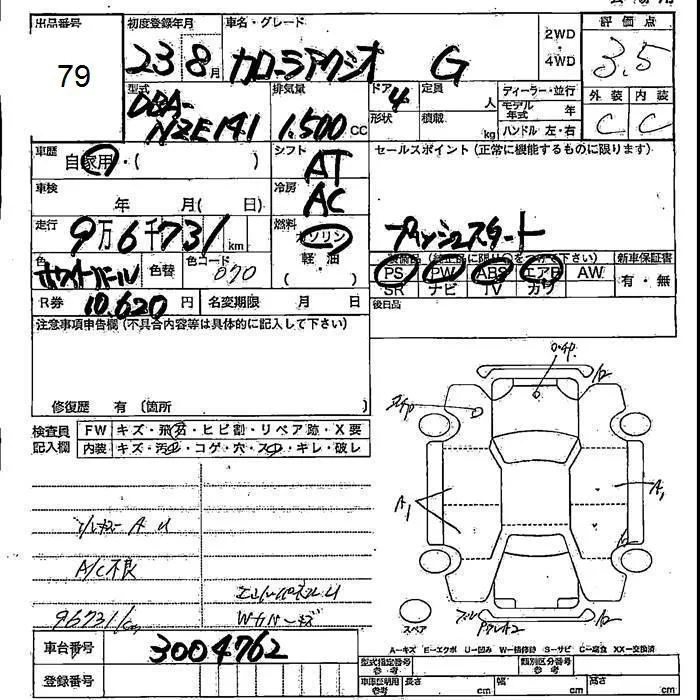 出品番号
79
初度登録年月
23 8月
車名・グレード
カローラアクシオ G
2WD
・
4WD
評価点
3.5
外装 内装
C C
型式
DBA-
NZE141
排気量
1.500 CC
ドア 4
形状
定員 人
積載 kg
ディーラー・並行
モデル年式 年
ハンドル 左・右
車歴
自家用・( )
シフト
AT
セールスポイント (正常に機能するものに限ります)
プッシュスタート
車検
年 月( 日)
冷房
AC
走行
9万6千731km
燃料
ガソリン
軽・油
( )
色
ホワイトパール
色替
色コード
070
PS PW ABS エアB AW
SR ナビ TV カワ
新車保証書
有・無
R券 10.620 円
名変期限 月 日
後日品
注意事項申告欄 (不具合内容等は具体的に記入して下さい)
修復歴 有 (箇所 )
検査員
記入欄
FW キズ・飛石・ヒビ割・リペア跡・X要
内装 キズ・汚れ・コゲ・穴・スレ・キレ・破レ
A/C不良
96731km
A1
A1
スペア
A-キズ E-エクボ U-凹み W-補修跡 S-サビ C-腐食 XX-交換済
車台番号 3004762
登録番号
型式指定番号
参考
類別区分番号
参考
車庫証明用
参考
長さ cm 幅 cm 高さ cm